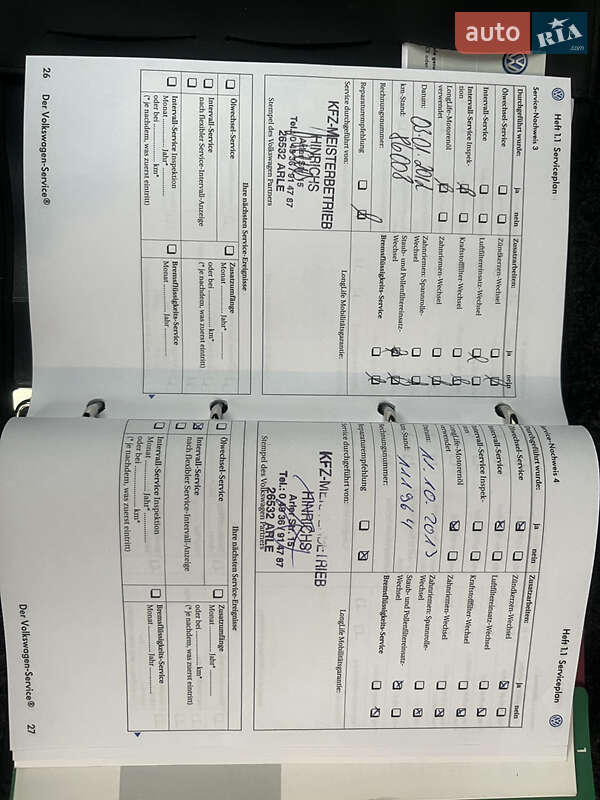 auto RIA .com
Heft 1.1 Serviceplan
Service-Nachweis 3
Durchgeführt wurde: ja nein
Ölwechsel-Service
Intervall-Service
Intervall-Service Inspek-
tion
LongLife-Motorenöl
verwendet
Datum:
km-Stand: 86008
Rechnungsnummer:
Reparaturempfehlung
Service durchgeführt von:
KFZ-MEISTERBETRIEB
HINRICHS
26532 ARLE
Stempel des Volkswagen Partners
Zusatzarbeiten: ja nein
Zündkerzen-Wechsel
Luftfiltereinsatz-Wechsel
Kraftstofffilter-Wechsel
Zahnriemen-Wechsel
Zahnriemen-Spannrolle-
Wechsel
Staub- und Pollenfiltereinsatz-
Wechsel
Bremsflüssigkeits-Service
LongLife Mobilitätsgarantie:
Ihre nächsten Service-Ereignisse
Ölwechsel-Service
Intervall-Service
nach flexibler Service-Intervall-Anzeige
Intervall-Service Inspektion
Monat Jahr*
oder bei km*
(* je nachdem, was zuerst eintritt)
Zusatzumfänge
Monat Jahr*
oder bei km*
(* je nachdem, was zuerst eintritt)
Bremsflüssigkeits-Service
Monat Jahr
26 Der Volkswagen-Service®
Heft 1.1 Serviceplan
ervice-Nachweis 4
urchgeführt wurde: ja nein
lwechsel-Service
ervall-Service
ervall-Service Inspek-
on
ongLife-Motorenöl
erwendet
atum: 11.10.2013
m-Stand: 111964
echnungsnummer:
eparaturempfehlung
ervice durchgeführt von:
HINRICHS
Arler Str. 15
Tel.: 0 49 36 / 91 47 87
26532 ARLE
Stempel des Volkswagen Partners
Zusatzarbeiten: ja nein
Zündkerzen-Wechsel
Luftfiltereinsatz-Wechsel
Kraftstofffilter-Wechsel
Zahnriemen-Wechsel
Zahnriemen-Spannrolle-
Wechsel
Staub- und Pollenfiltereinsatz-
Wechsel
Bremsflüssigkeits-Service
LongLife Mobilitätsgarantie:
Ihre nächsten Service-Ereignisse
Ölwechsel-Service
Intervall-Service
nach flexibler Service-Intervall-Anzeige
Intervall-Service Inspektion
Monat Jahr*
oder bei km*
(* je nachdem, was zuerst eintritt)
Zusatzumfänge
Monat Jahr*
oder bei km*
(* je nachdem, was zuerst eintritt)
Bremsflüssigkeits-Service
Monat Jahr
Der Volkswagen-Service® 27
1